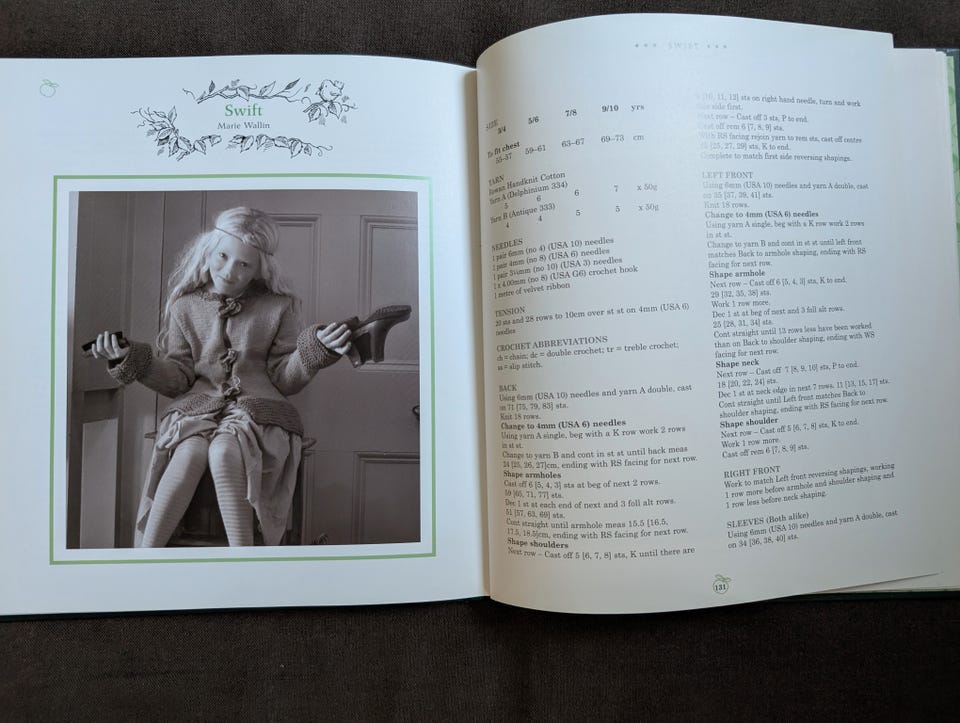 Swift
Marie Wallin
SWIFT
SIZE
3/4 5/6 7/8 9/10 yrs
To fit chest
55–57 59–61 63–67 69–73 cm
YARN
Rowan Handknit Cotton
Yarn A (Delphinium 334)
5 6 6 7 x 50g
Yarn B (Antique 333)
4 4 5 5 x 50g
NEEDLES
1 pair 6mm (no 4) (USA 10) needles
1 pair 4mm (no 8) (USA 6) needles
1 pair 3¼mm (no 10) (USA 3) needles
1 x 4.00mm (no 8) (USA G6) crochet hook
1 metre of velvet ribbon
TENSION
20 sts and 28 rows to 10cm over st st on 4mm (USA 6)
needles
CROCHET ABBREVIATIONS
ch = chain; dc = double crochet; tr = treble crochet;
ss = slip stitch.
BACK
Using 6mm (USA 10) needles and yarn A double, cast
on 71 [75, 79, 83] sts.
Knit 18 rows.
Change to 4mm (USA 6) needles
Using yarn A single, beg with a K row work 2 rows
in st st.
Change to yarn B and cont in st st until back meas
24 [25, 26, 27]cm, ending with RS facing for next row.
Shape armholes
Cast off 6 [5, 4, 3] sts at beg of next 2 rows.
59 [65, 71, 77] sts.
Dec 1 st at each end of next and 3 foll alt rows.
51 [57, 63, 69] sts.
Cont straight until armhole meas 15.5 [16.5,
17.5, 18.5]cm, ending with RS facing for next row.
Shape shoulders
Next row – Cast off 5 [6, 7, 8] sts, K until there are
[10, 11, 12] sts on right hand needle, turn and work
side first.
Next row – Cast off 3 sts, P to end.
Cast off rem 6 [7, 8, 9] sts.
With RS facing rejoin yarn to rem sts, cast off centre
[25, 27, 29] sts, K to end.
Complete to match first side reversing shapings.
LEFT FRONT
Using 6mm (USA 10) needles and yarn A double, cast
on 35 [37, 39, 41] sts.
Knit 18 rows.
Change to 4mm (USA 6) needles
Using yarn A single, beg with a K row work 2 rows
in st st.
Change to yarn B and cont in st st until left front
matches Back to armhole shaping, ending with RS
facing for next row.
Shape armhole
Next row – Cast off 6 [5, 4, 3] sts, K to end.
29 [32, 35, 38] sts.
Work 1 row more.
Dec 1 st at beg of next and 3 foll alt rows.
25 [28, 31, 34] sts.
Cont straight until 13 rows less have been worked
than on Back to shoulder shaping, ending with WS
facing for next row.
Shape neck
Next row – Cast off 7 [8, 9, 10] sts, P to end.
18 [20, 22, 24] sts.
Dec 1 st at neck edge in next 7 rows. 11 [13, 15, 17] sts.
Cont straight until Left front matches Back to
shoulder shaping, ending with RS facing for next row.
Shape shoulder
Next row – Cast off 5 [6, 7, 8] sts, K to end.
Work 1 row more.
Cast off rem 6 [7, 8, 9] sts.
RIGHT FRONT
Work to match Left front reversing shapings, working
1 row more before armhole and shoulder shaping and
1 row less before neck shaping.
SLEEVES (Both alike)
Using 6mm (USA 10) needles and yarn A double, cast
on 34 [36, 38, 40] sts.
131